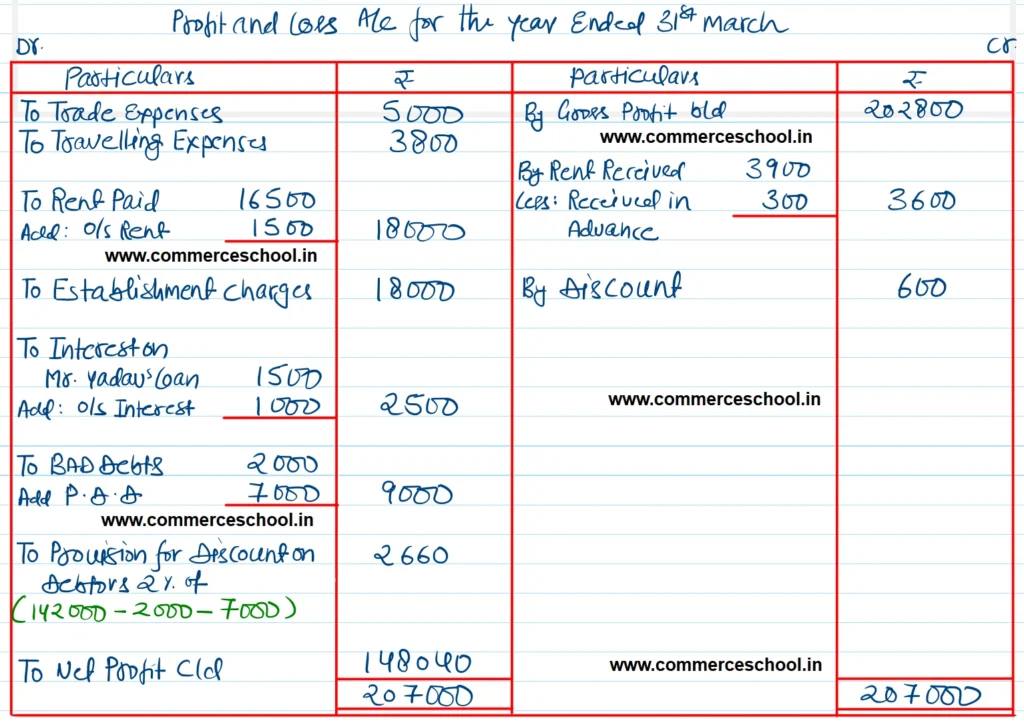 Profit and Loss A/c for the year Ended 31st march
Dr. Cr.
Particulars ₹ Particulars ₹
To Trade Expenses 5000 By Gross Profit b/d 202800
To Travelling Expenses 3800 www.commerceschool.in
By Rent Received 3900
To Rent Paid 16500 Less: Received in 300 3600
Add: o/s Rent 1500 18000 Advance
www.commerceschool.in
To Establishment charges 18000 By Discount 600
To Interest on
Mr. Yadav's Loan 1500
Add: o/s Interest 1000 2500 www.commerceschool.in
To BAD Debts 2000
Add P.D.D 7000 9000
www.commerceschool.in
To Provision for Discount on 2660
Debtors 2% of
(142000 - 2000 - 7000)
To Net Profit C/d 148040 www.commerceschool.in
207000 207000